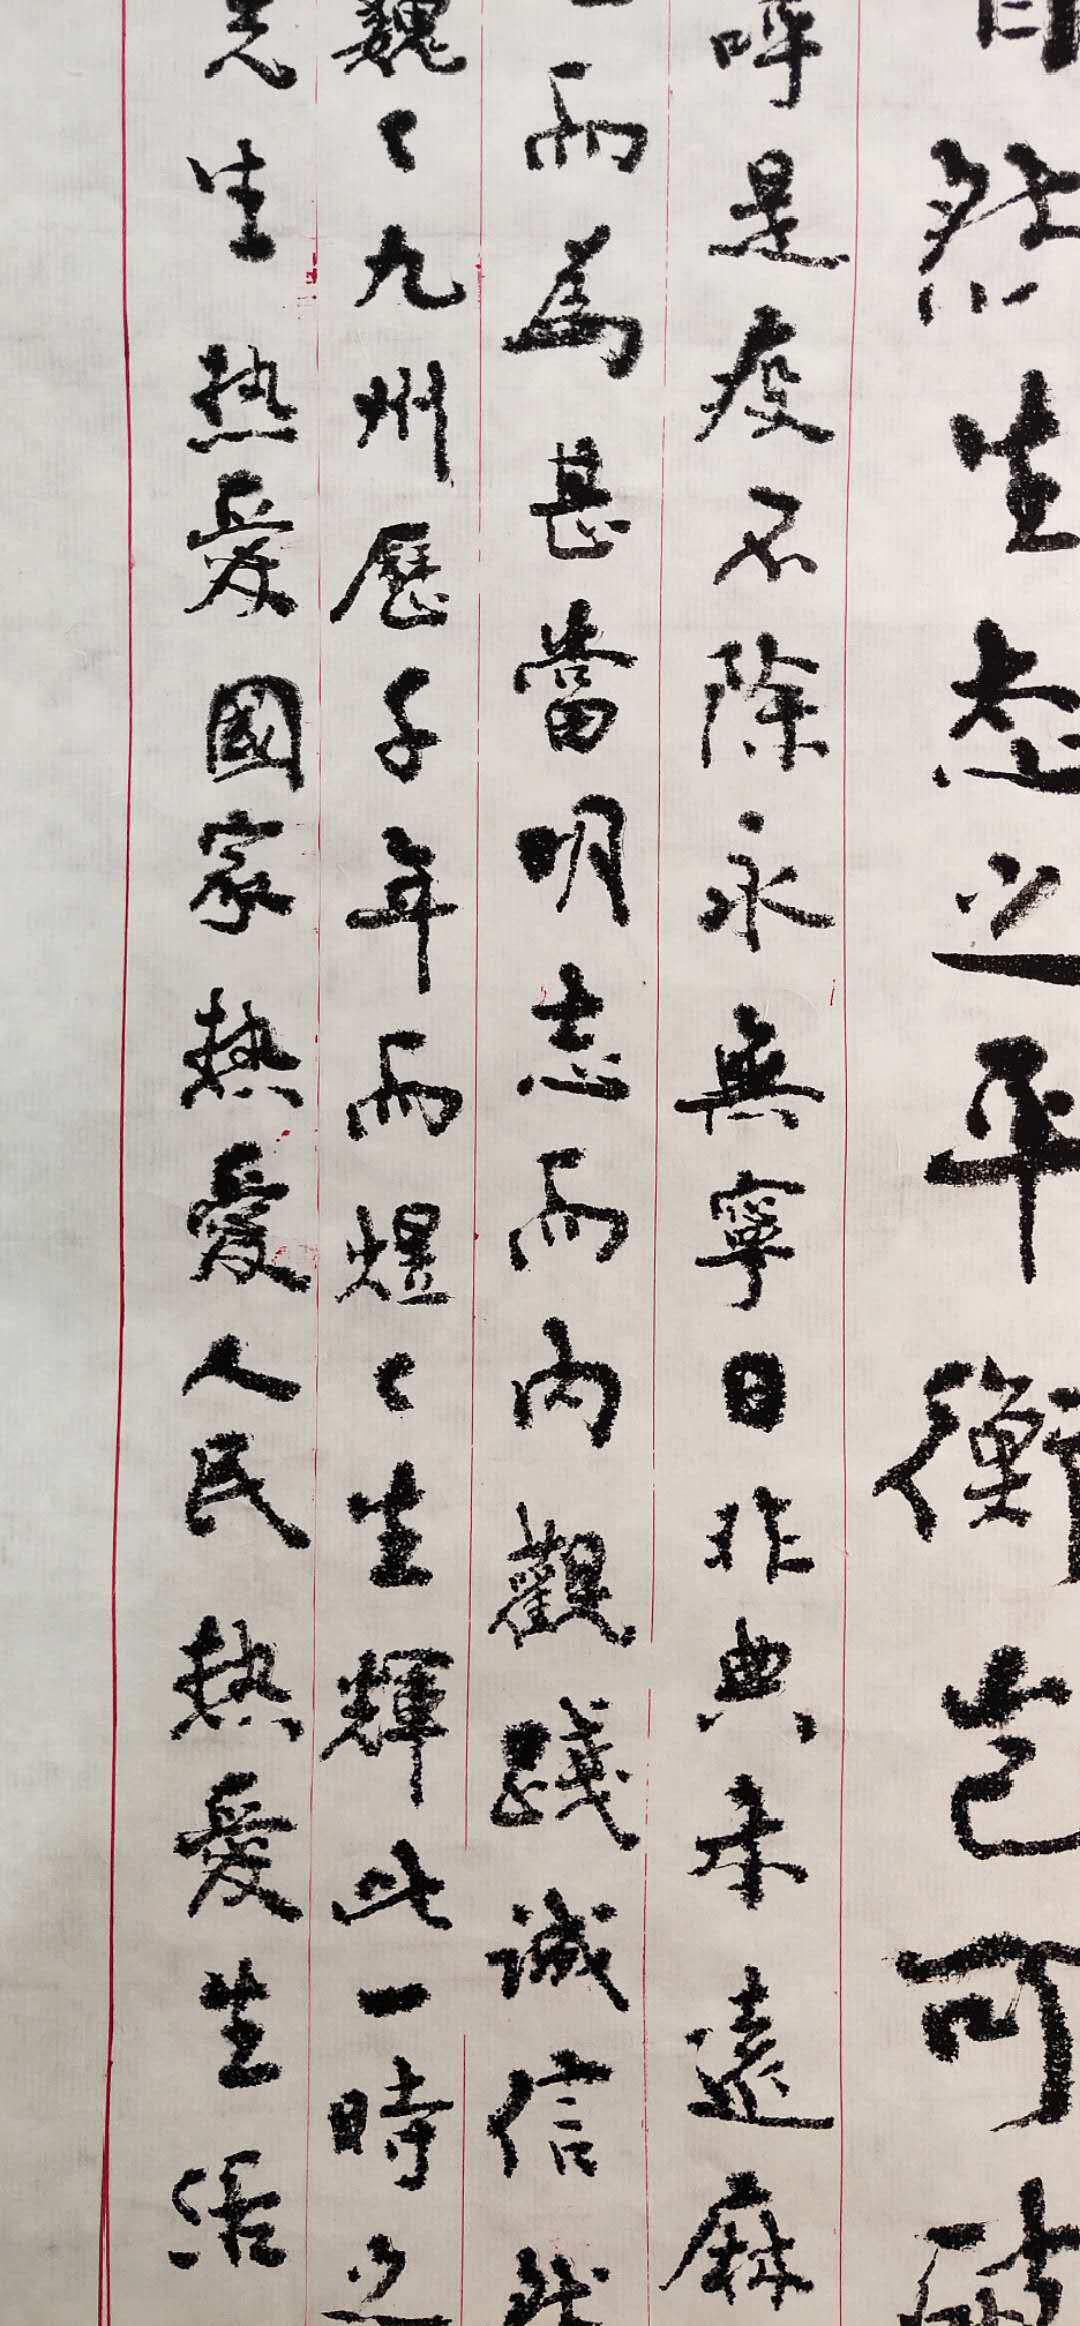 自然生态之平衡岂可破
呼是疫不除永無寧日非典未遠麻
而為甚當明志而内觀踐誠信
巍〻九州歷千年而煜〻生輝此一時之
先生热愛國家熱愛人民熱愛生活